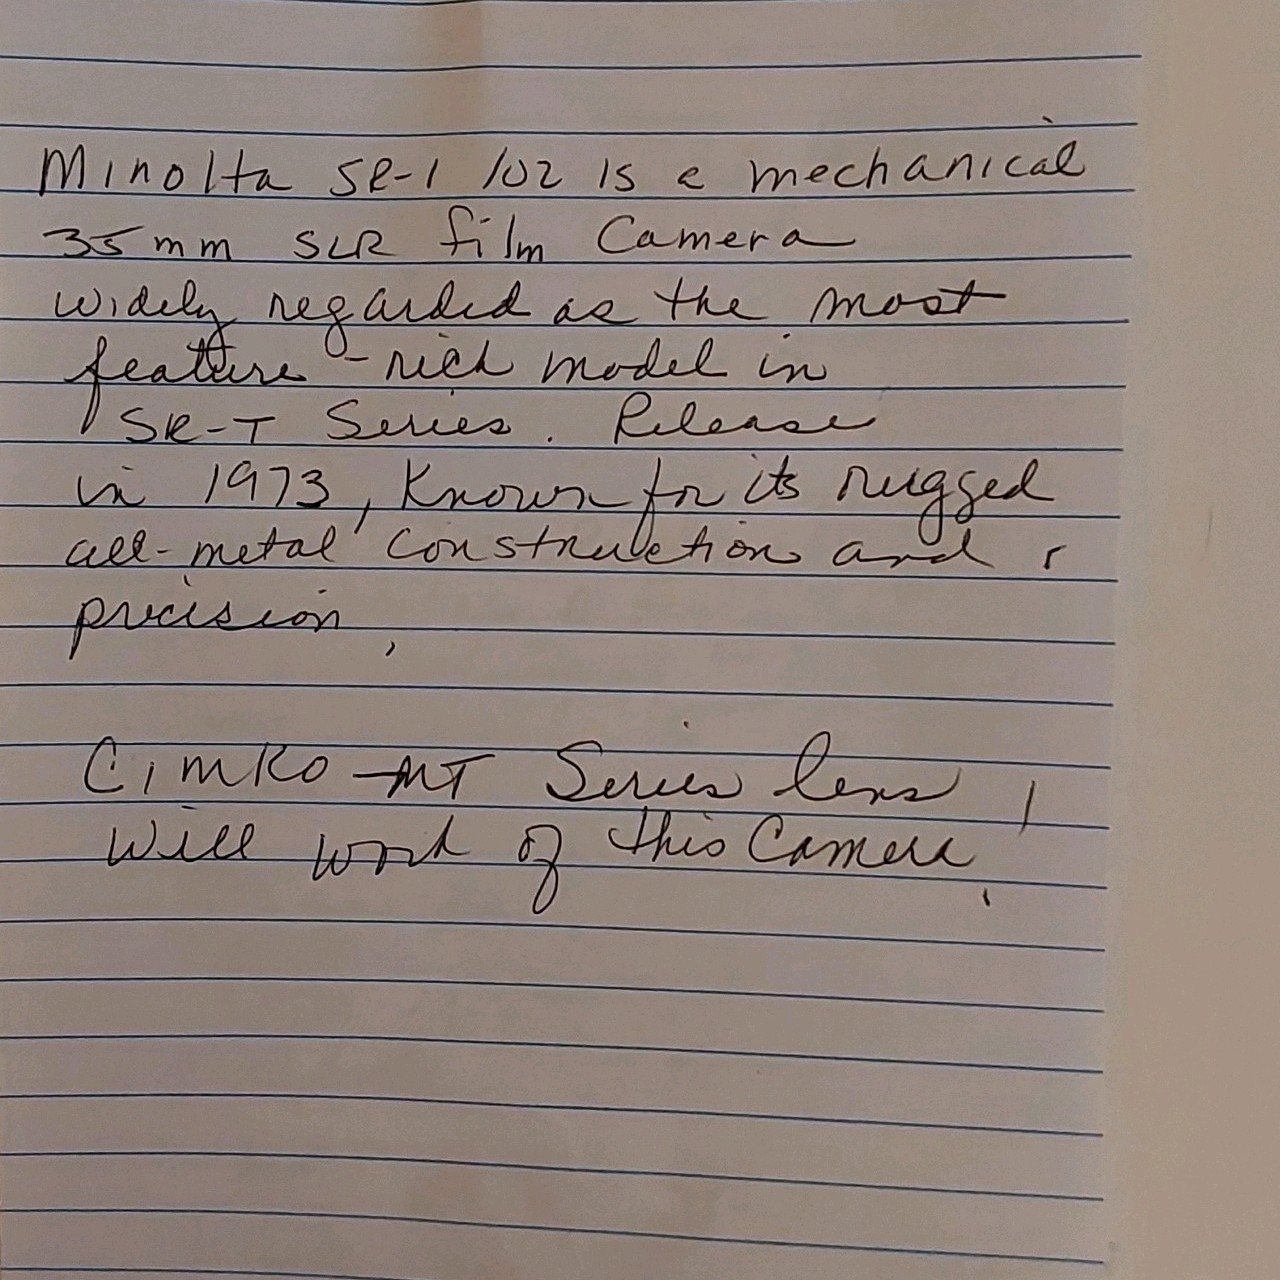 Minolta SR-1 102 is a mechanical
35mm SLR film Camera
widely regarded as the most
feature-rich model in
SR-T Series. Release
in 1973, Known for its rugged
all-metal construction and
precision,
Cimko MT Series lens
will work of this Camera.